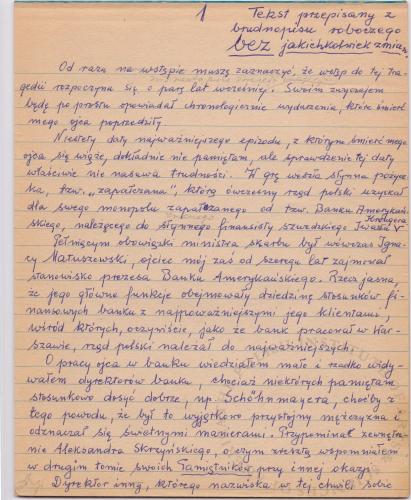 1 Tekst przepisany z
brudnopisu roboczego
bez jakichkolwiek zmian.
Od razu na wstępie muszę zaznaczyć, że wstęp do tej tra-
gedii rozpoczyna się o parę lat wcześniej. Swoim zwyczajem
będę po prostu opowiadał chronologicznie wydarzenia, które śmierć
mego ojca poprzedziły
Niestety daty najważniejszego epizodu, z którym śmierć mego
ojca się wiąże, dokładnie nie pamiętam, ale sprawdzenie tej daty
właściwie nie nasuwa trudności. W grę wchodzi słynna pożycz-
ka, tzw. "zapałczana", którą ówczesny rząd polski uzyskał
dla swego monopolu zapałczanego od tzw. Banku Amerykań-
skiego, należącego do słynnego finansisty szwedzkiego Iwara Kreugera
Pełniącym obowiązki ministra skarbu był wówczas Igna-
cy Matuszewski, ojciec mój zaś od szeregu lat zajmował
stanowisko prezesa Banku Amerykańskiego. Rzecz jasna,
że jego główne funkcje obejmowały dziedzinę stosunków fi-
nansowych banku z najpoważniejszymi jego klientami,
wśród których, oczywiście, jako że bank pracował w War-
szawie, rząd polski należał do najważniejszych.
O pracy ojca w banku wiedziałem mało i rzadko widy-
wałem dyrektorów banku, chociaż niektórych pamiętam
stosunkowo dosyć dobrze, np. Schönmayera, choćby z
tego powodu, że był to wyjątkowo przystojny mężczyzna i
odznaczał się świetnymi manierami. Przypominał zewnętrz-
nie Aleksandra Skrzyńskiego, o czym zresztą wspomniałem
w drugim tomie swoich Pamiętników przy innej okazji.
Dyrektor inny, którego nazwiska w tej chwili sobie